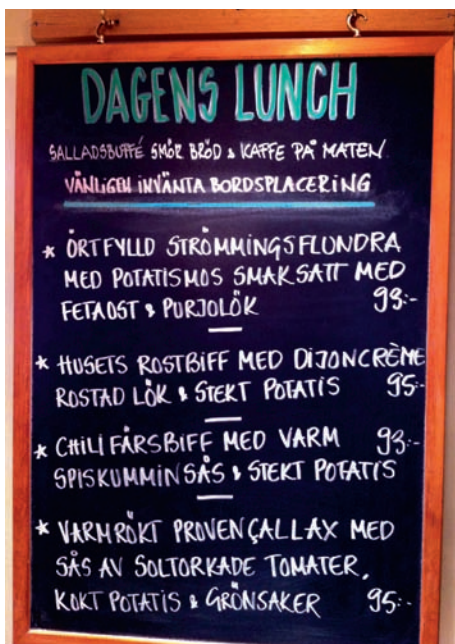 DAGENS LUNCH
SALLADSBUFFÉ SMÖR BRÖD & KAFFE PÅ MATEN
VÄNLIGEN INVÄNTA BORDSPLACERING
* ÖRTFYLLD STRÖMMINGSFLUNDRA
MED POTATISMOS SMAKSATT MED
FETAOST & PURJOLÖK 93:-
* HUSETS ROSTBIFF MED DIJONCRÈME
ROSTAD LÖK & STEKT POTATIS 95:-
* CHILIFÄRSBIFF MED VARM 93:-
SPISKUMMINSÅS & STEKT POTATIS
* VARMRÖKT PROVENÇALLAX MED
SÅS AV SOLTORKADE TOMATER,
KOKT POTATIS & GRÖNSAKER 95:-